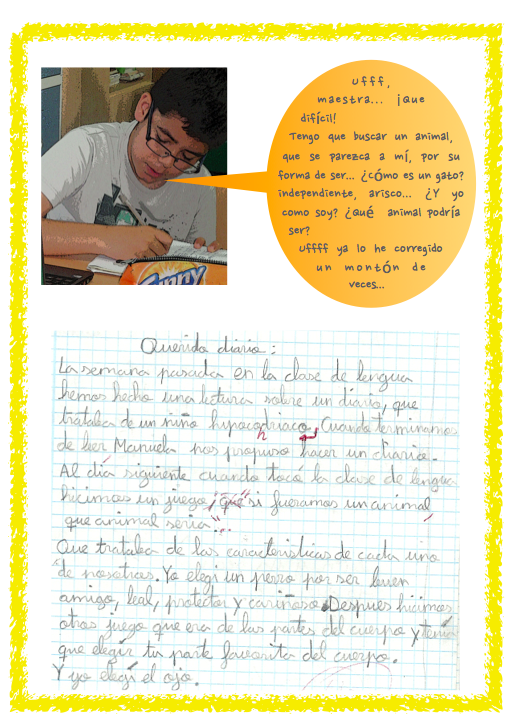 Ufff,
maestra... ¡que
difícil!
Tengo que buscar un animal,
que se parezca a mí, por su
forma de ser... ¿cómo es un gato?
independiente, arisco... ¿Y yo
como soy? ¿qué animal podría
ser?
Uffff ya lo he corregido
un montón de
veces...
Querido diario:
La semana pasada en la clase de lengua
hemos hecho una lectura sobre un diario, que
trataba de un niño hypocodriaco, Cuando terminamos
n
de leer Manuela nos propuso hacer un diario.
Al día siguiente cuando tocó la clase de lengua
hicimos un juego, "que si fueramos un animal,
que animal seria"...
Que trataba de las caracteristicas de cada uno
de nosotros. Yo elegí un perro por ser buen
amigo, leal, protector y cariñoso. Despues hicimos
otros juego que era de las partes del cuerpo y tenia
que elegir tu parte favorita del cuerpo.
Y yo elegí el ojo.